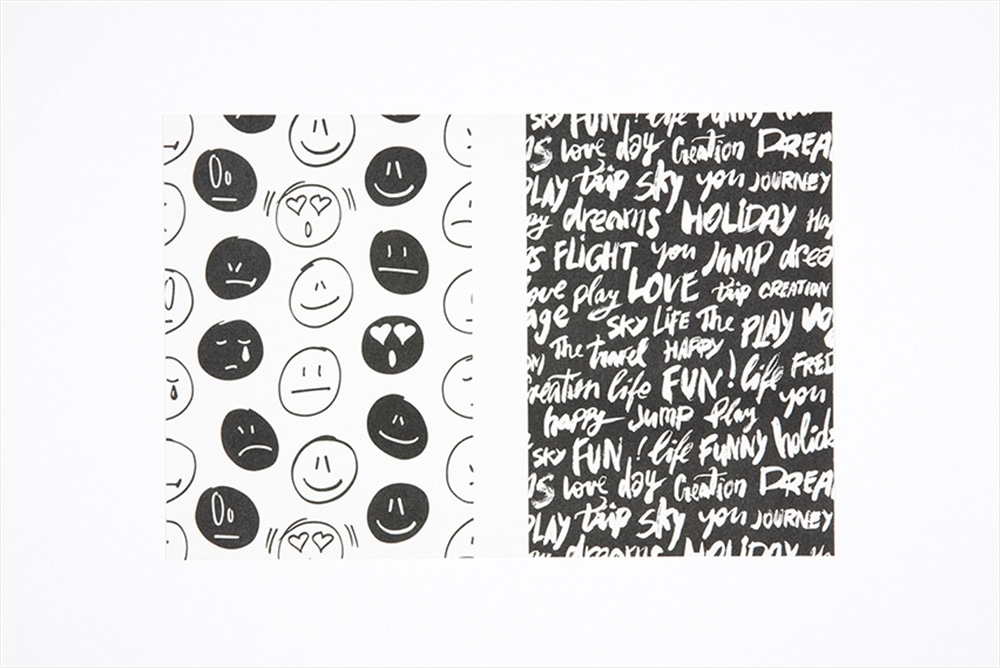 SKY FUN ! life FUNNY
love day Creation DREA
PLAY trip SKY you JOURNEY
dreams HOLIDAY
FLIGHT you JUMP drea
play LOVE trip CREATION
SKY LIFE The PLAY
The travel HAPPY
reation life FUN ! life FRED
happy JUMP Play you
SKY FUN ! life FUNNY holid
love day Creation DREA
PLAY trip SKY you JOURNEY
dreams HOLIDAY